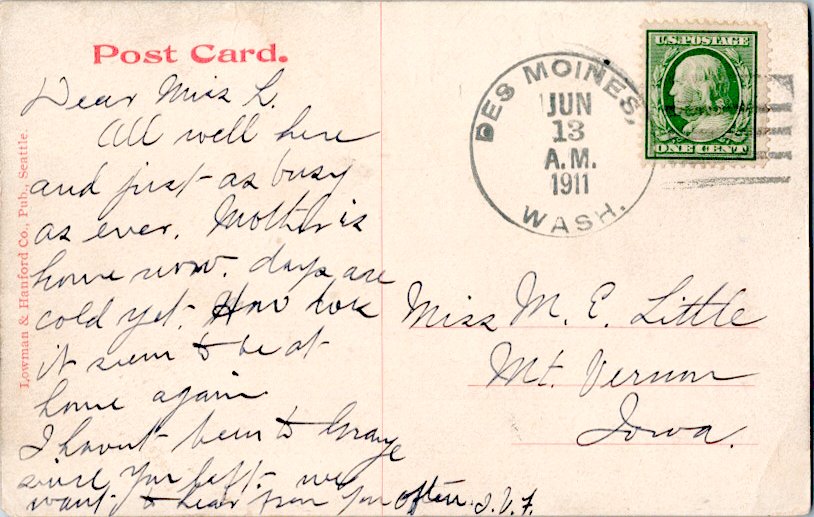 Post Card.
Dear Miss L.
All well here
and just as busy
as ever. Mother is
home now. days are
cold yet. How
it seem to be at
home again
I havnt been to
since you left. we
want to hear from you often. I.V.F.
Lowman & Hanford Co., Pub., Seattle.
DES MOINES,
JUN
13
A.M.
1911
WASH.
U.S. POSTAGE
ONE CENT
Miss M. E. Little
Mt. Vernon
Iowa.